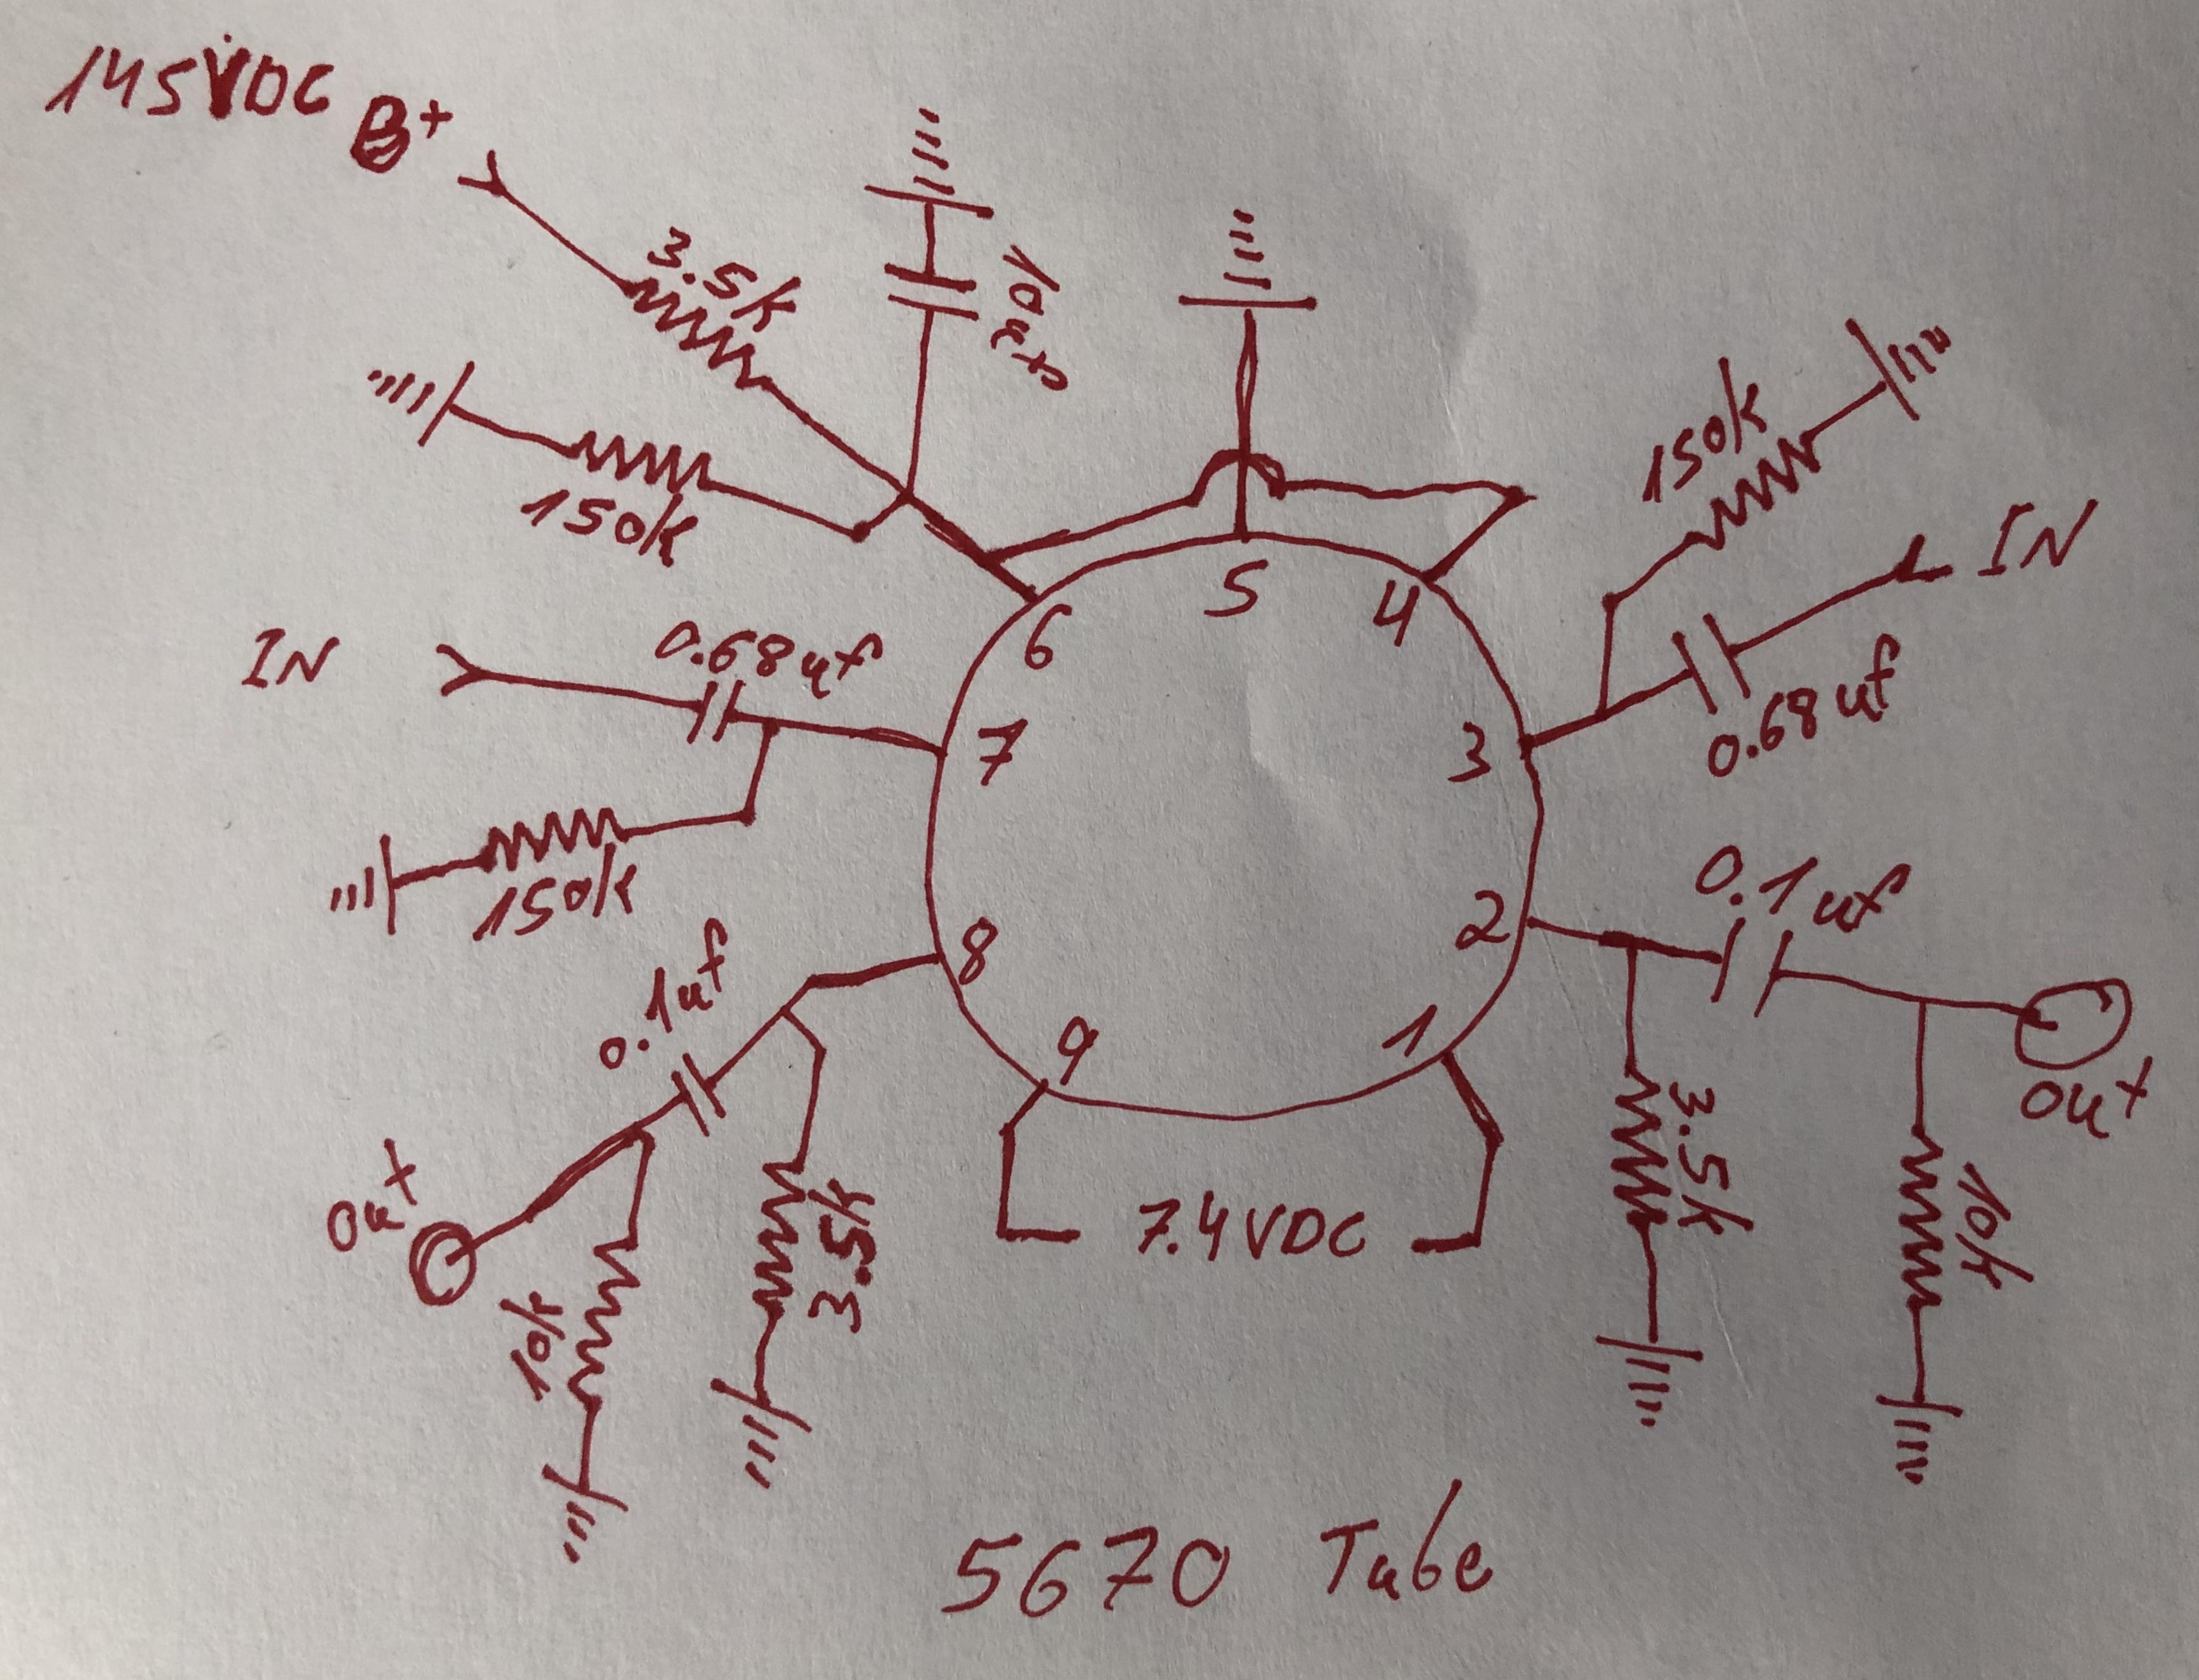 145VDC B+
3.5k
10uf
150k
150k
IN
IN
0.68uf
0.68uf
5
6
4
7
3
150k
8
2
0.1uf
0.1uf
9
1
Out
Out
7.4VDC
3.5k
3.5k
10k
10k
5670 Tube